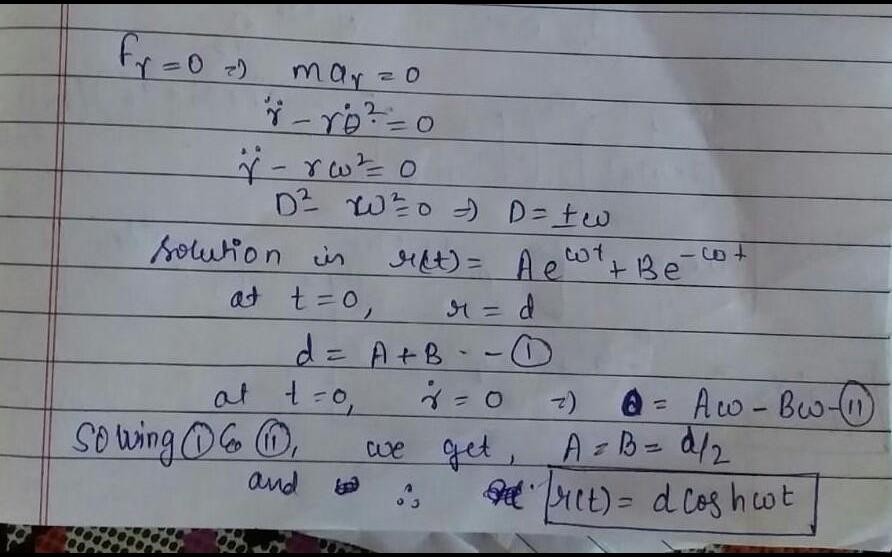 Fr = 0 ⇒ mar = 0
r̈ - rθ̇² = 0
r̈ - rω² = 0
D² - ω² = 0 ⇒ D = ±ω
solution is r(t) = Ae^ωt + Be^-ωt
at t = 0, r = d
d = A + B - - ①
at t = 0, ṙ = 0 ⇒ 0 = Aω - Bω - ⑪
Solving ① & ⑪, we get, A = B = d/2
and ∴ r(t) = d cosh ωt